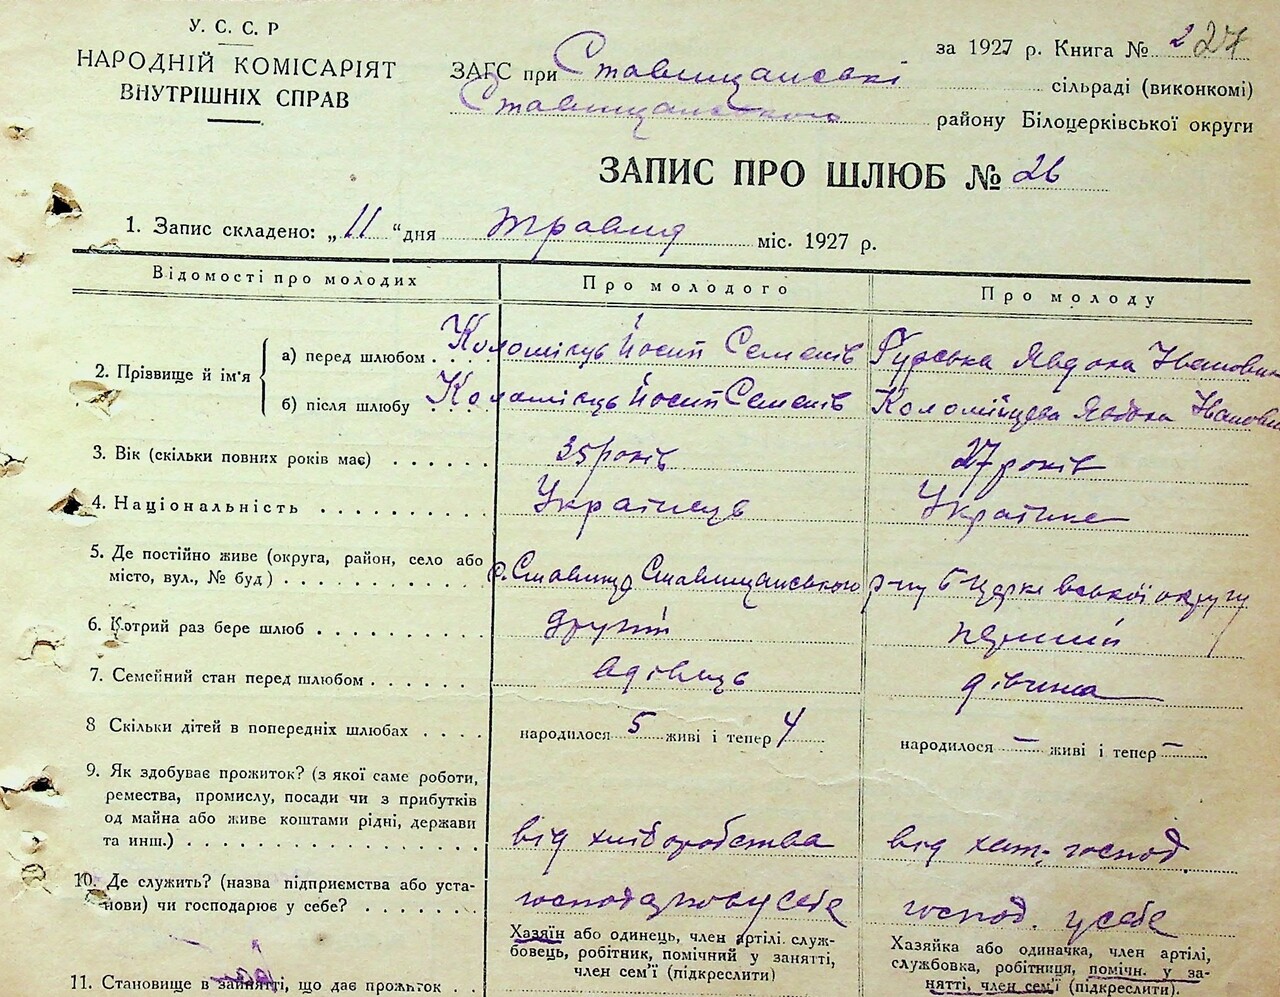 У. С. С. Р
НАРОДНІЙ КОМІСАРІЯТ
ВНУТРІШНІХ СПРАВ
за 1927 р. Книга № 2 27
ЗАГС при Ставищанські сільраді (виконкомі)
Ставищанського району Білоцерківської округи
ЗАПИС ПРО ШЛЮБ № 26
1. Запис складено: „11“ дня травня міс. 1927 р.
Відомості про молодих Про молодого Про молоду
2. Прізвище й ім'я
а) перед шлюбом . . . Коломієць Йосип Семенів Гурська Явдоха Івановна
б) після шлюбу . . . Коломієць Йосип Семенів Коломійцева Явдоха Івановна
3. Вік (скільки повних років має) . . . . . . 35 років 27 років
4. Національність . . . . . . . . . Українець Українка
5. Де постійно живе (округа, район, село або
місто, вул., № буд) . . . . . . . . . . . с. Ставище Ставищанського р-ну Б Церківської округу
6. Котрий раз бере шлюб . . . . . . . . . другий перший
7. Семейний стан перед шлюбом . . . . . . вдівець дівчина
8 Скільки дітей в попередніх шлюбах . . . . народилося 5 живі і тепер 4 народилося — живі і тепер —
9. Як здобуває прожиток? (з якої саме роботи,
ремества, промислу, посади чи з прибутків
од майна або живе коштами рідні, держави
та инш.) . . . . . . . . . . . . . . . . від хліборобства від хат. господ
10. Де служить? (назва підприємства або уста-
нови) чи господарює у себе? . . . . . . . у себе господ. у себе
Хазяїн або одинець, член артілі. служ-
бовець, робітник, помічний у занятті,
член сем'ї (підкреслити)
Хазяйка або одиначка, член артілі,
службовка, робітниця, помічн. у за-
нятті, член сем'ї (підкреслити).
11. Становище в занятті, що дає прожиток . .